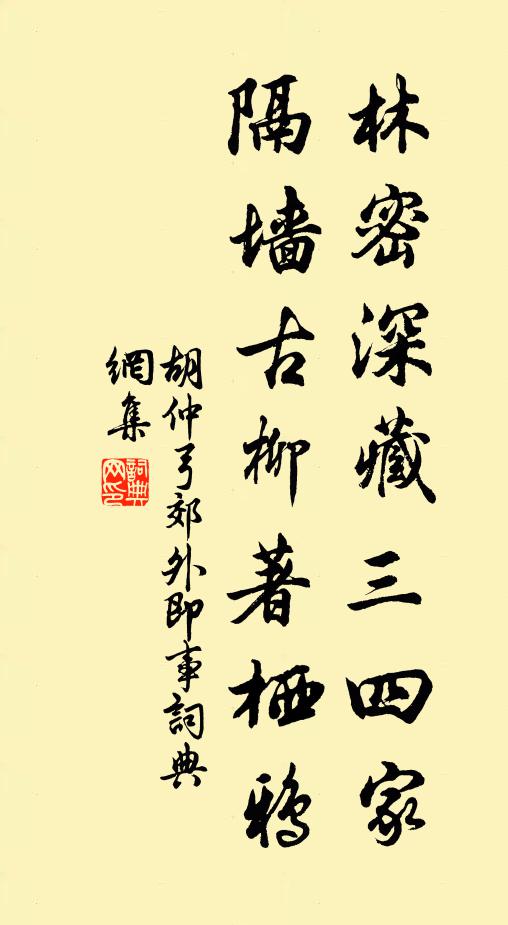 林密深藏三四家
隔墙古柳著栖鸦
胡仲弓郊外即事詞典
網集
詞典
网印